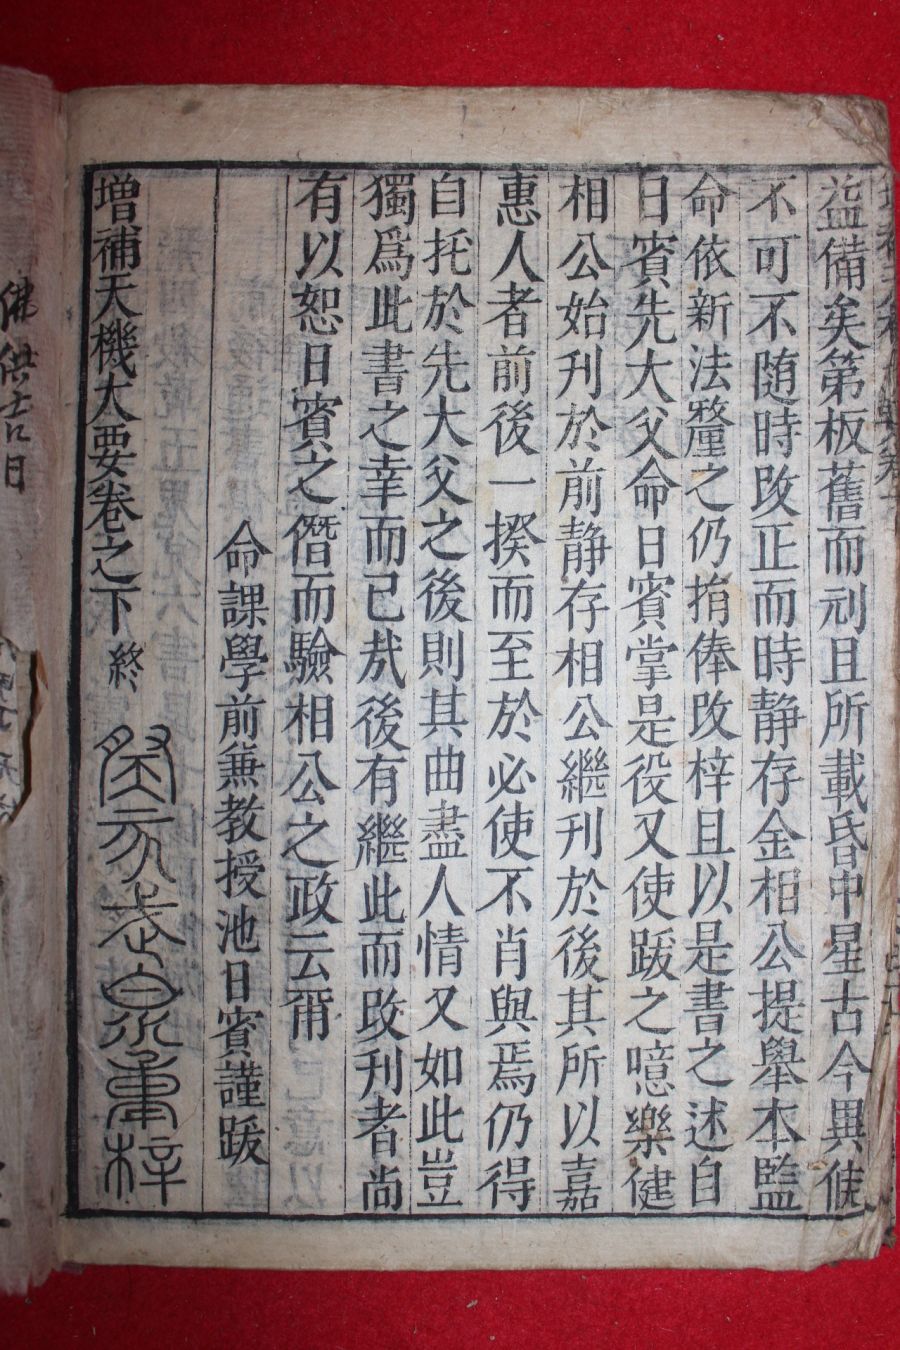 益備矣第板舊而刓且所載昏中星古今異候
不可不随時改正而時靜存金相公提擧本監
命依新法釐之仍捐俸改梓且以是書之述自
日賓先大父命日賓掌是役又使跋之噫樂健
相公始刊於前靜存相公繼刊於後其所以嘉
惠人者前後一揆而至於必使不肖與焉仍得
自托於先大父之後則其曲盡人情又如此豈
獨爲此書之幸而已㢤後有繼此而改刊者尚
有以恕日賓之僭而驗相公之政云爾
命課學前兼教授池日賓謹跋
增補天機大要卷之下 終
癸亥季泉重梓
佛供吉日